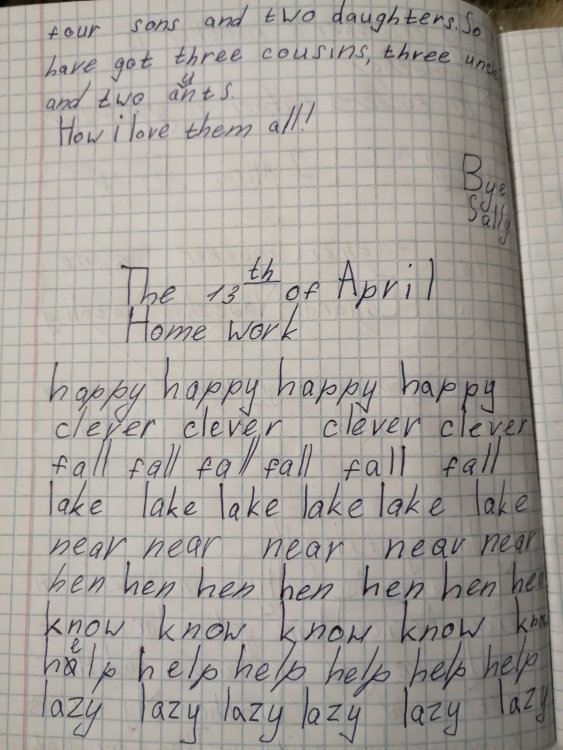 four sons and two daughters. So
have got three cousins, three uncle
and two aunts.
How i love them all!
Bye
Sally
The 13th of April
Home work
happy happy happy happy
clever clever clever clever
fall fall fall fall fall fall
lake lake lake lake lake lake
near near near near near
hen hen hen hen hen hen hen
know know know know kno
help help help help help help
lazy lazy lazy lazy lazy lazy